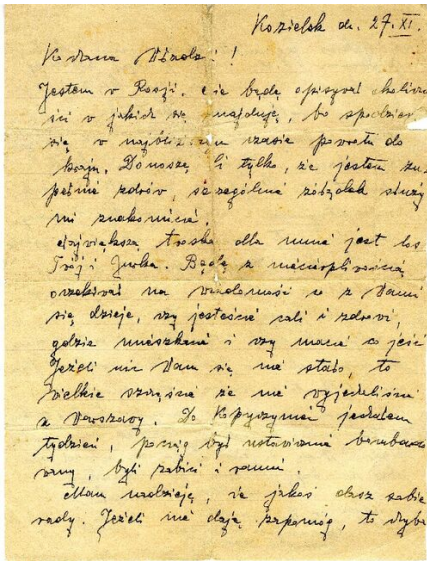 Kozielsk dn. 27.XI.
Kochana Wandz! !
Jestem w Rosji, nie będę opisywał okoliczno
ści w jakich się znajduję, bo spodziew
się w najbliższym czasie powrotu do
kraju. Donoszę Ci tylko, że jestem zu
pełnie zdrów, szczególnie żołądek służy
mi znakomicie.
Największą troską dla mnie jest los
Twój i Jurka. Będę z niecierpliwością
oczekiwał na wiadomość co z Wami
się dzieje, czy jesteście cali i zdrowi,
gdzie mieszkacie i czy macie co jeść
Jeżeli nic Wam się nie stało, to
wielkie szczęście że nie wyjechaliście
z Warszawy. Do Kopyczyniec jechałem
tydzień, pociąg był ustawicznie bombardo
wany, byli zabici i ranni.
Mam nadzieję, że jakoś dasz sobie
radę. Jeżeli nie dają zapomóg, to